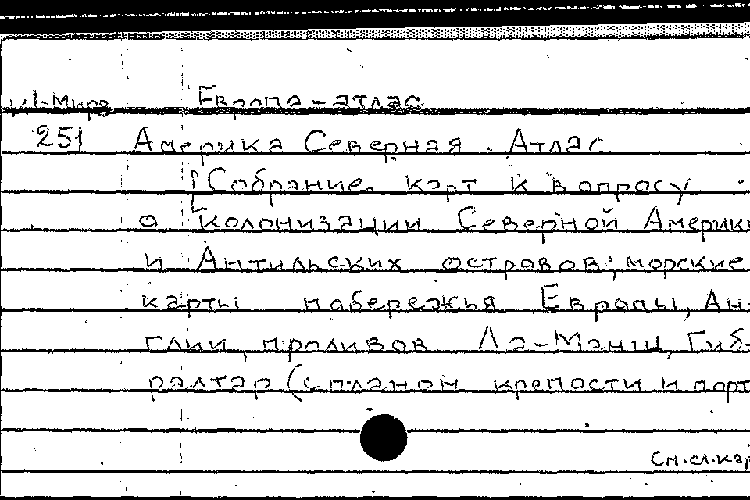 Европа-атлас
251 Америка Северная. Атлас
[Собрание карт к вопросу
о колонизации Северной Америки
и Антильских островов; морские
карты побережья Европы, Ан-
глии, проливов Ла-Манш, Гиб-
ралтар (с планом крепости и порт
См.сл.кар